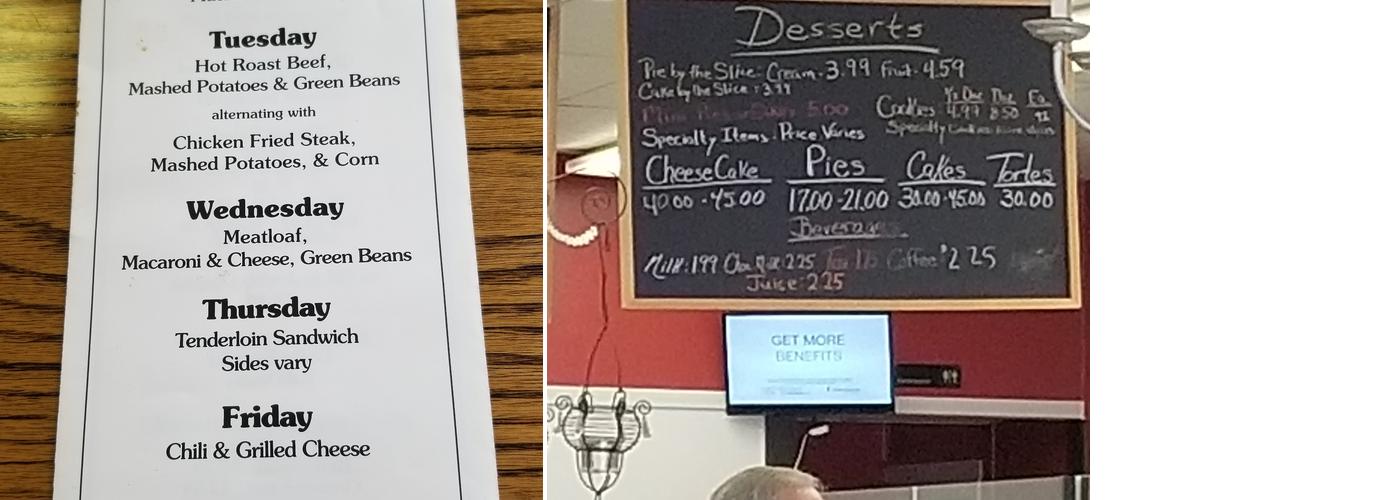 Tuesday
Hot Roast Beef,
Mashed Potatoes & Green Beans
alternating with
Chicken Fried Steak,
Mashed Potatoes, & Corn
Wednesday
Meatloaf,
Macaroni & Cheese, Green Beans
Thursday
Tenderloin Sandwich
Sides vary
Friday
Chili & Grilled Cheese
Desserts
Pie by the Slice: Cream. 3.99 Fruit. 4.59
Cake by the Slice : 3.99
5.00
Cookies 4.99 8.50
Specialty Items. Price Varies
Specialty
CheeseCake Pies Cakes Tortes
40.00 - 45.00 17.00 - 21.00 30.00 - 45.00 30.00
Beverages
Milk: 1.99 2.25 Coffee $2.25
Juice: 2.25
GET MORE
BENEFITS